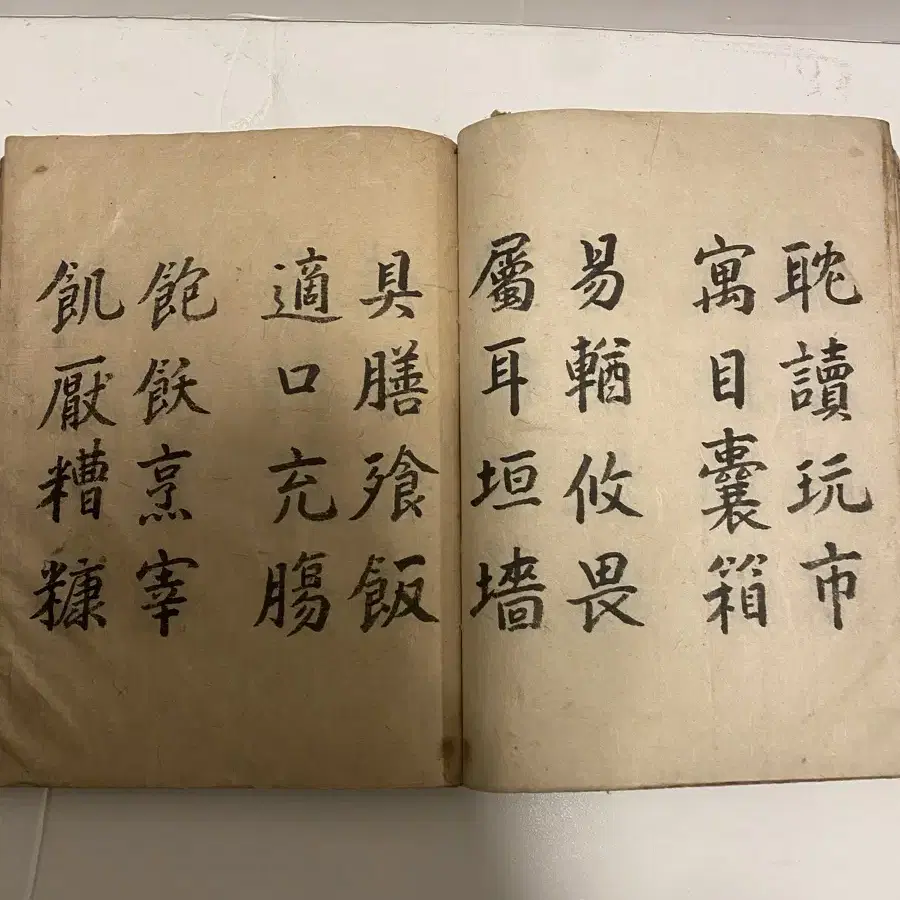 耽讀玩市
寓目囊箱
易輶攸畏
屬耳垣墻
具膳飱飯
適口充膓
飽飫烹宰
飢厭糟糠